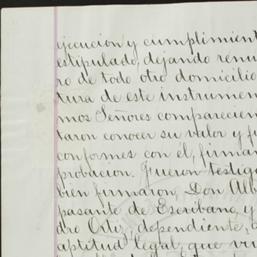 ejecucion y cumplimient
estipulado, dejando renu
ro de todo otro domicilio
tura de este instrumen
mos Señores comparecien
taron conocer su valor y fu
conformes con él, firman
probacion. Fueron testigo
bien firmaron, Don Alb
pasante de Escribano, y
dro Ortiz, dependiente,
aptitud legal, que vi